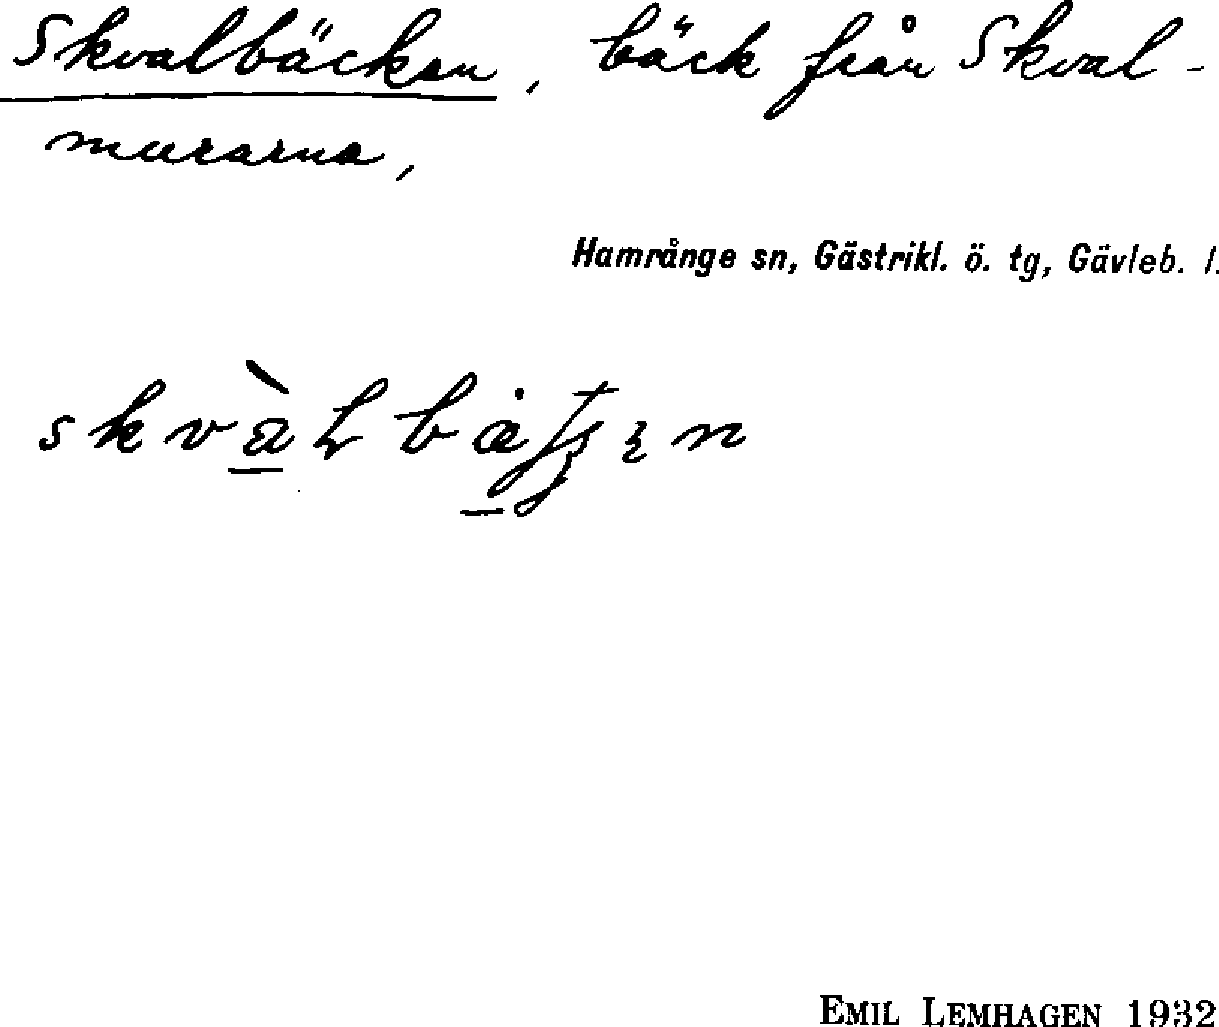 Skvalbäcken, bäck från Skval-
murarna,
Hamrånge sn, Gästrikl. ö. tg, Gävleb. l.
EMIL LEMHAGEN 1932